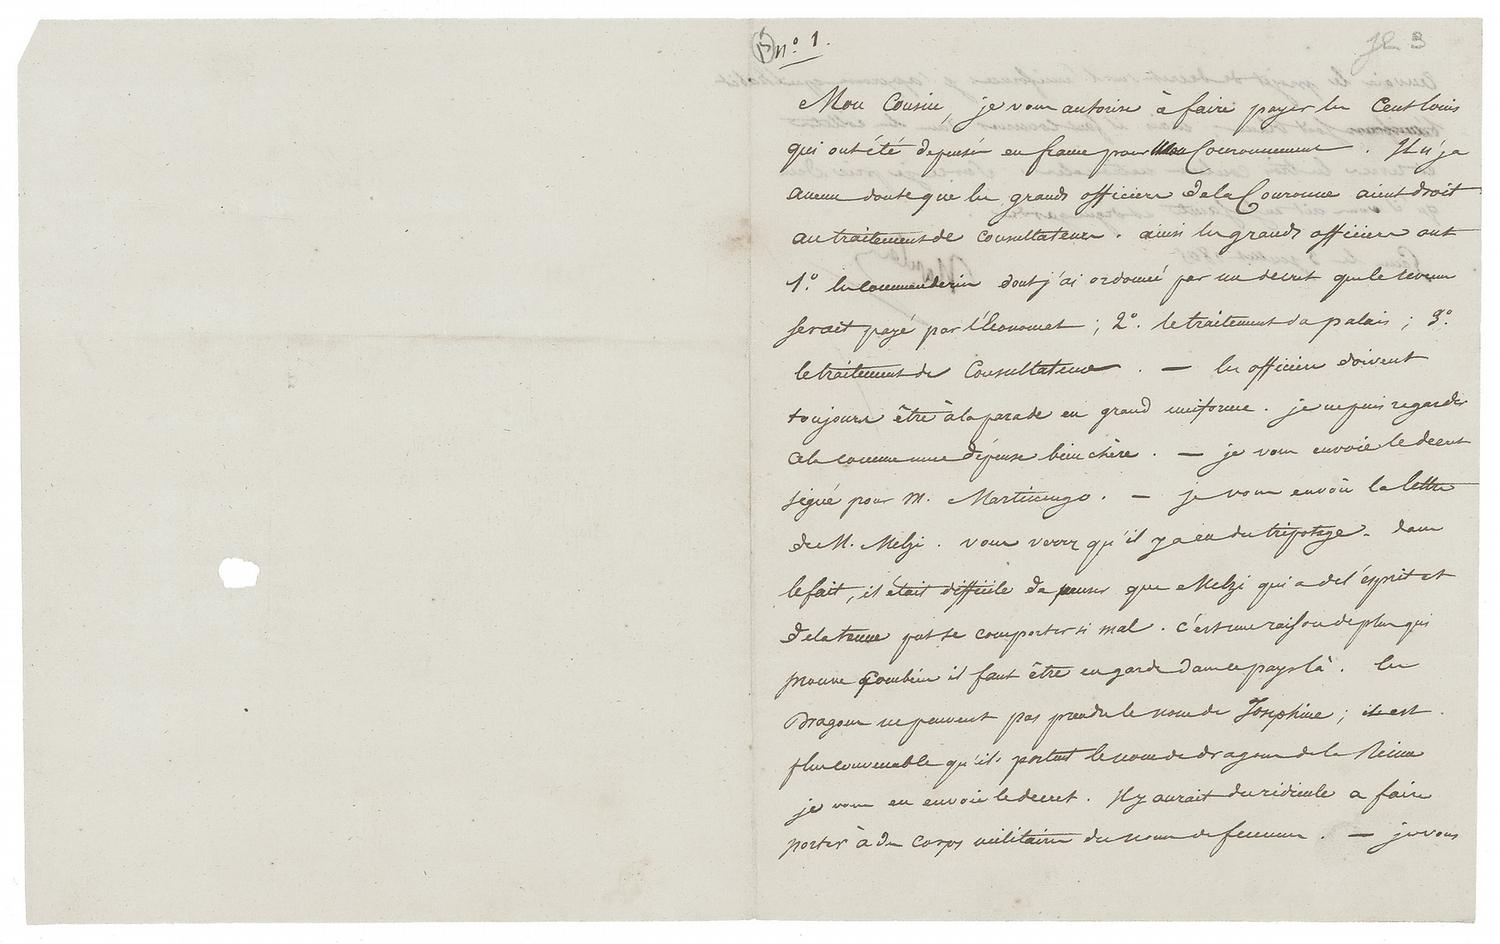 n.º 1.
Mon Cousin, je vous autorise à faire payer les Cent louis
qui ont été dépensés en france pour Mon Couronnement. Il n'y a
aucun doute que les grands officiers de la Couronne aient droit
au traitement de Consultateur. ainsi les grands officiers ont
1.º les Commanderies dont j'ai ordonné par un decret que le revenu
serait payé par l'Économat ; 2.º le traitement du palais ; 3.º
le traitement de Consultateur. — les officiers doivent
toujours être à la parade en grand uniforme. je ne puis regarder
cela comme une dépense bien chère. — je vous envoie le decret
signé pour M. Martinengo. — je vous envoie la lettre
de M. Melzi. vous verrez qu'il y a eu du tripotage. dans
le fait, il était difficile de penser que Melzi qui a de l'esprit et
de la tenue put se comporter si mal. c'est une raison de plus qui
prouve combien il faut être en garde dans ce pays là. les
Dragons ne peuvent pas prendre le nom de Joséphine ; il est
plus convenable qu'ils portent le nom de dragons de la Reine
je vous en envoie le decret. Il y aurait du ridicule a faire
porter à des corps militaires des noms de femmes. — je vous